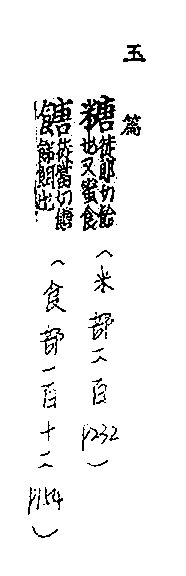 玉篇
糖徒郎切飴也又蜜食（米部二百 p232）
餹徒當切餹餌也（食部一百十二 p154）